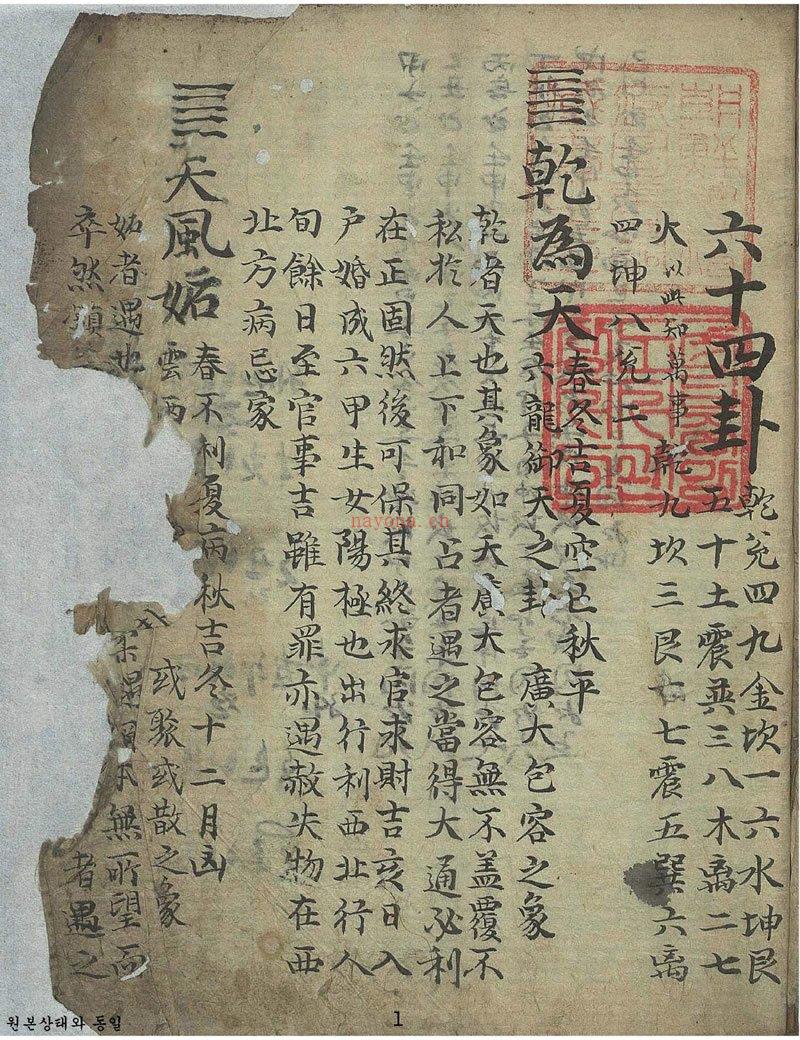 六十四卦
乾兌四九金坎一六水坤艮
五十土震巽三八木离二七
火以此知萬事乾九坎三艮七七震五巽六离
四坤八兌二
乾為天
春冬吉夏空亡秋平
六龍御天之卦 廣大包容之象
乾者天也其象如天廣大包容無不盖覆不
私於人上下和同占者遇之當得大通必利
在正固然後可保其終求官求財吉亥日入
戶婚成六甲生女陽極也出行利西北行人
旬餘日至官事吉雖有罪亦遇赦失物在西
北方病忌家
天風姤
春不利夏病秋吉冬十二月凶
雲 或聚或散之象
姤者遇也 無所望而
卒然 者遇之
nayona.cn
원본상태와 동일
1